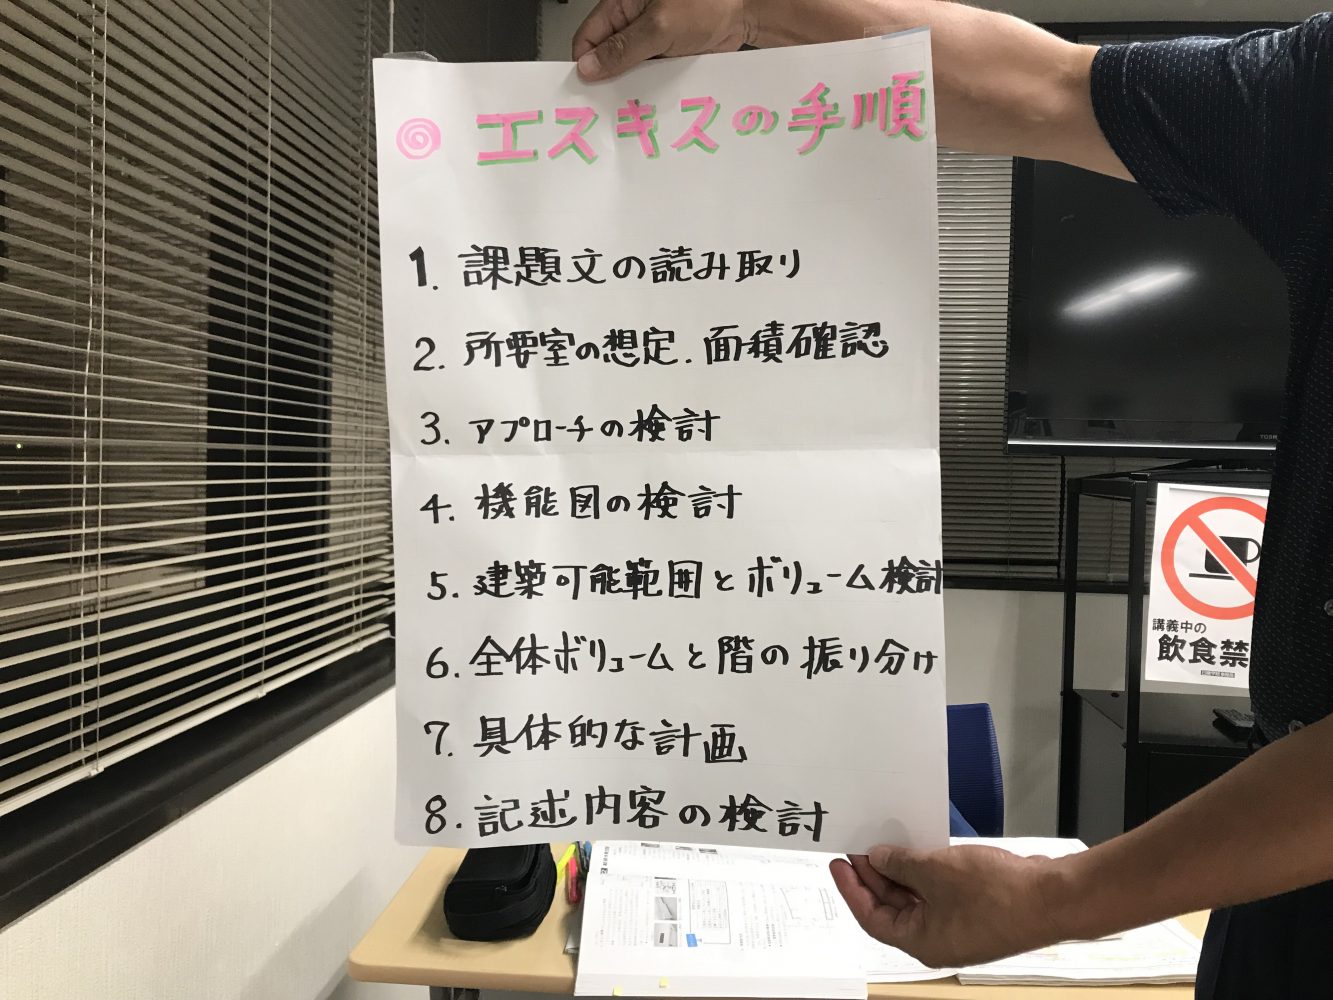 エスキスの手順
1. 課題文の読み取り
2. 所要室の想定. 面積確認
3. アプローチの検討
4. 機能図の検討
5. 建築可能範囲とボリューム検討
6. 全体ボリュームと階の振り分け
7. 具体的な計画
8. 記述内容の検討
TOSH
講義中の
飲食禁